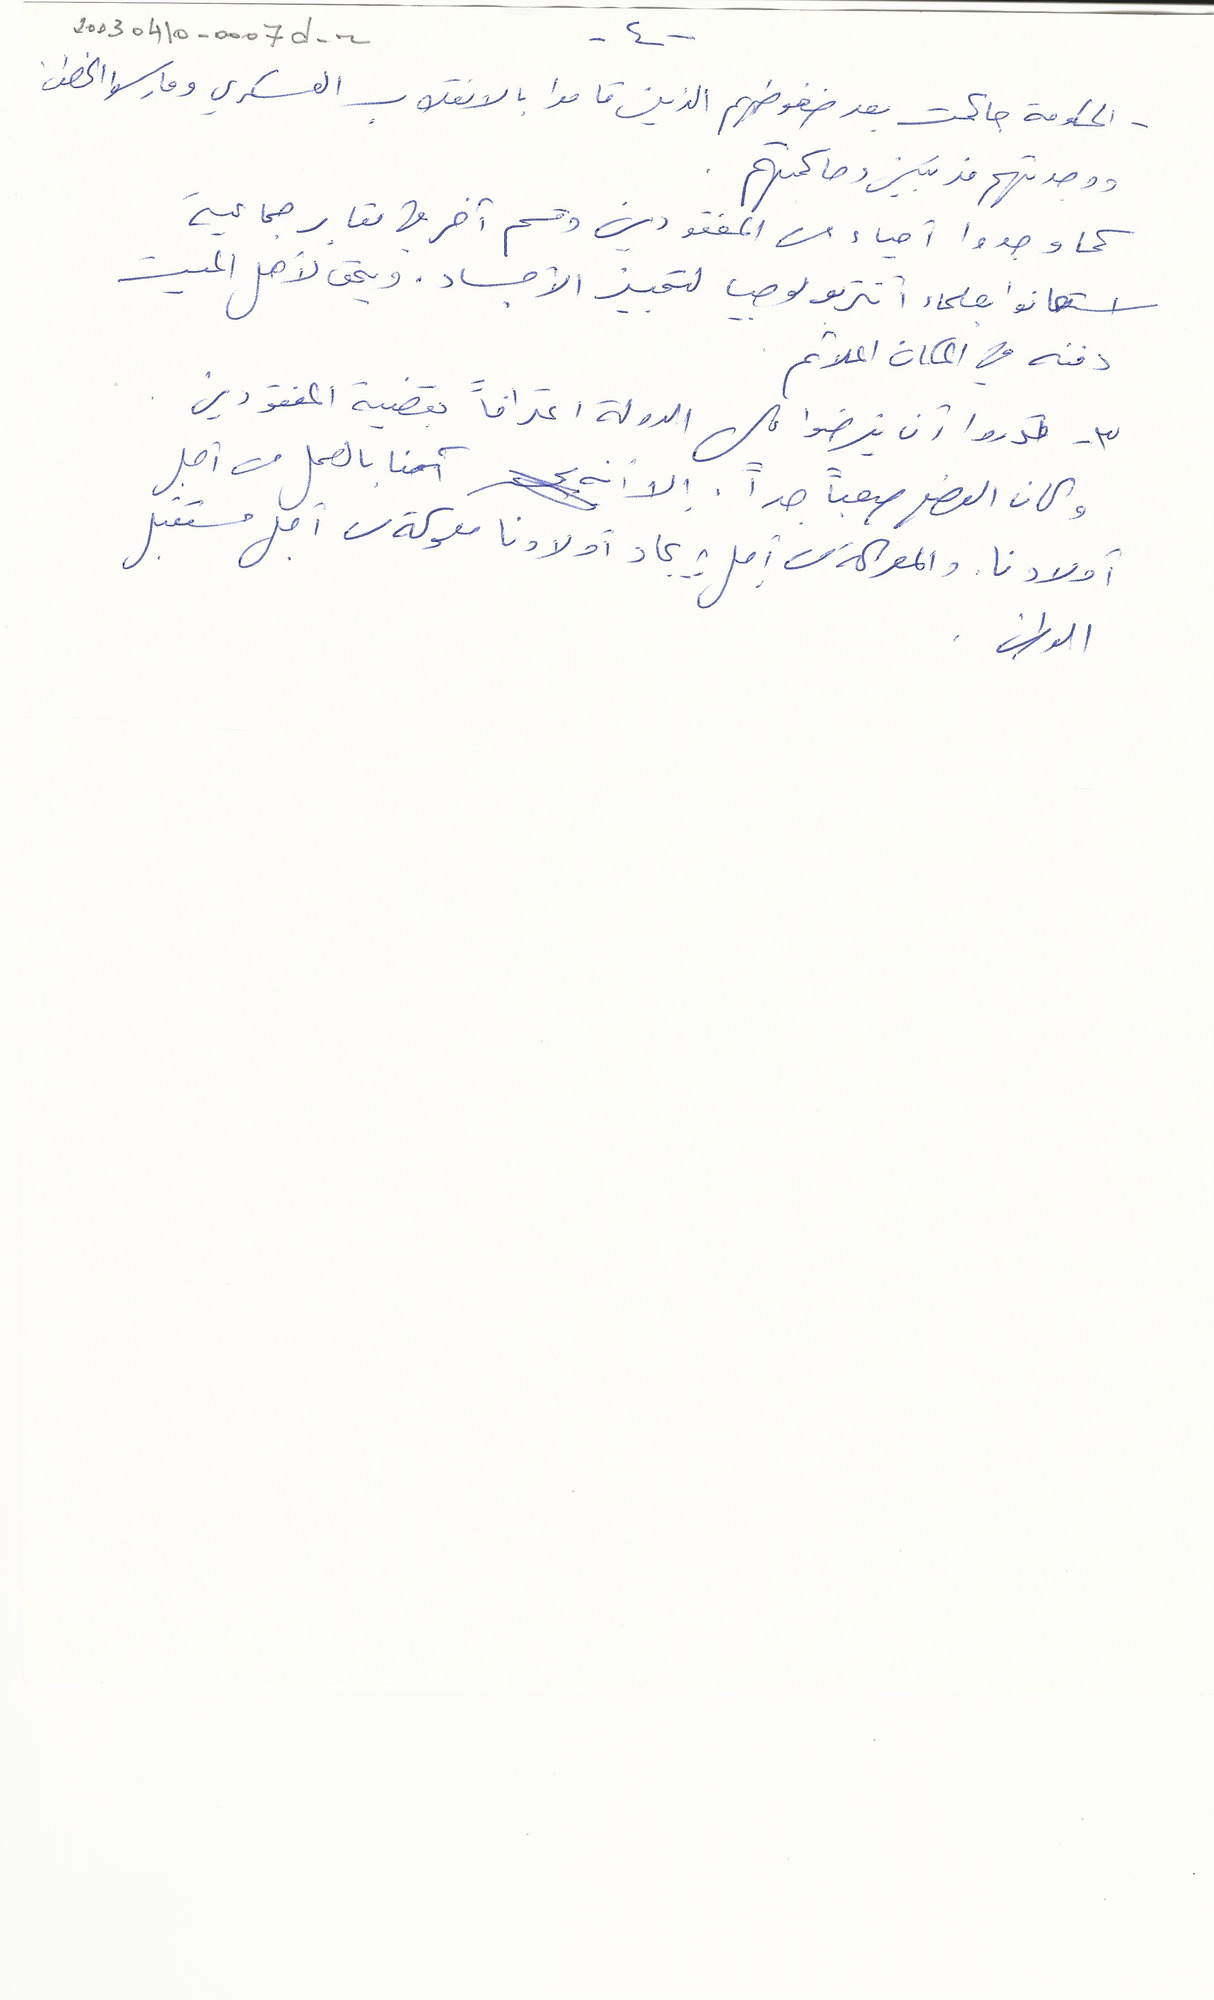 20030410-0007d-r
- ٤ -
- الحكومة حاكمت بعد ضغوطهم الذين قاموا بالانقلاب العسكري ومارسوا الخطف
ووجدتهم مذنبين وحاكمتهم .
كما وجدوا أحياء من المفقودين وقسم آخر في مقابر جماعية
استعانوا بعلماء أنتربولوجيا لتمييز الأجساد . ويحق لأهل الميت
دفنه في المكان الملائم
٣- قدروا أن يفرضوا على الدولة اعترافاً بقضية المفقودين .
وكان الوضع صعباً جداً . إلا أنه آمنا بالعمل من أجل
أولادنا . والمعركة من أجل إيجاد أولادنا معركة من أجل مستقبل
الوطن .